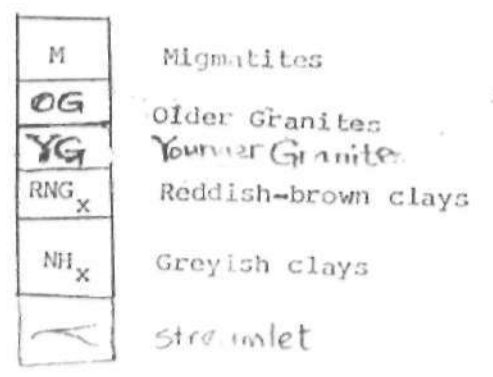 M Migmatites
OG Older Granites
YG Younger Granite
RNGx Reddish-brown clays
NHx Greyish clays
streamlet